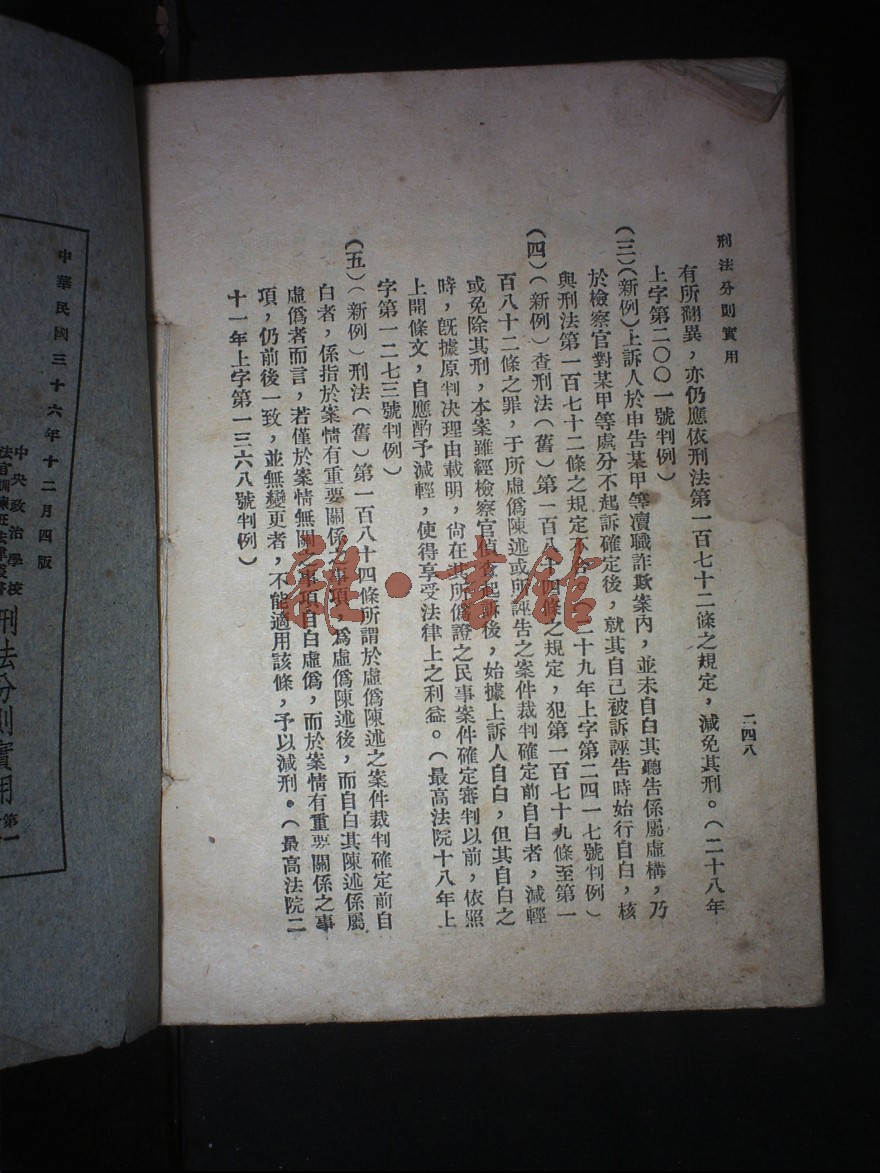 刑法分則實用
二四八
有所翻異，亦仍應依刑法第一百七十二條之規定，減免其刑。（二十八年
上字第二〇〇一號判例）
（三）（新例）上訴人於申告某甲等瀆職詐欺案內，並未自白其聽告係屬虛構，乃
於檢察官對某甲等處分不起訴確定後，就其自己被訴誣告時始行自白，核
與刑法第一百七十二條之規定不合。（二十九年上字第二四一七號判例）
（四）（新例）查刑法（舊）第一百八十四條之規定，犯第一百七十九條至第一
百八十二條之罪，于所虛僞陳述或所誣告之案件裁判確定前自白者，減輕
或免除其刑，本案雖經檢察官偵查起訴後，始據上訴人自白，但其自白之
時，旣據原判决理由載明，尙在其所僞證之民事案件確定審判以前，依照
上開條文，自應酌予減輕，使得享受法律上之利益。（最高法院十八年上
字第一二七三號判例）
（五）（新例）刑法（舊）第一百八十四條所謂於虛僞陳述之案件裁判確定前自
白者，係指於案情有重要關係之事項，爲虛僞陳述後，而自白其陳述係屬
虛僞者而言，若僅於案情無關之事項自白虛僞，而於案情有重要關係之事
項，仍前後一致，並無變更者，不能適用該條，予以減刑。（最高法院二
十一年上字第一三六八號判例）
中華民國三十六年十二月四版
中央政治學校
法官訓練班法律叢書
刑法分則實用
第一
雜·書館